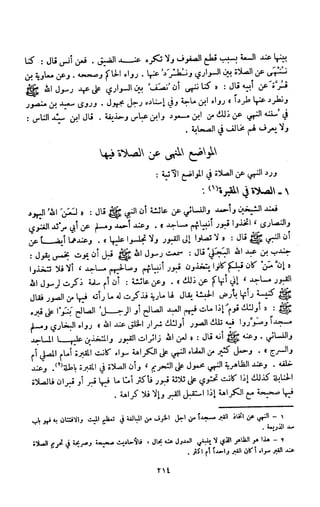 بينها عند السعة بسبب قطع الصفوف ولا تكره عنــد الضيق . فعن أنس قال : كنا
نُنْهى عن الصلاة بين السواري ونُطْرَدُ عنها . رواه الحاكم وصححه . وعن معاوية بن
قُرّةَ عن أبيه قال : « كنا نُنهى أن نَصُفّ بين السواري على عهد رسول الله ﷺ
ونطرد عنها طردا » رواه ابن ماجه وفي إسناده رجل مجهول . وروى سعيد بن منصور
في سننه النهي عن ذلك عن ابن مسعود وابن عباس وحذيفة . قال ابن سيد الناس :
ولا يعرف لهم مخالف في الصحابة .
المواضع المنهى عن الصلاة فيها
ورد النهي عن الصلاة في المواضع الآتية :
١ - الصلاة في المقبرة (١) :
فعند الشيخين وأحمد والنسائي عن عائشة أن النبي ﷺ قال : « لَعَنَ الله اليهود
والنصارى ، اتخذوا قبور أنبيائهم مساجد » . وعند أحمد ومسلم عن أبي مرثد الغنوي
أن النبي ﷺ قال : « لا تصلوا إلى القبور ، ولا تجلسوا عليها » . وعندهما أيضــاً عن
جندب بن عبد الله البَجَلي قال : سمعت رسول الله ﷺ قبل أن يموت بخمس يقول :
« إن من كان قبلكم كانوا يتخذون قبور أنبيائهم وصالحيهم مساجد ، ألا فلا تتخذوا
القبور مساجد ، إني أنهاكم عن ذلك » . وعن عائشة : أن أم سلمة ذكرت لرسول الله
ﷺ كنيسة رأتها بأرض الحبشة يقال لها مارية فذكرت له ما رأته فيها من الصور فقال
ﷺ : « أولئك قوم إذا مات فيهم العبد الصالح أو الرجــل الصالح بَنَوْا على قبره
مسجداً وصوّروا فيه تلك الصور أولئك شرار الخلق عند الله » رواه البخاري ومسلم
والنسائي . وعنه ﷺ أنه قال : « لعن الله زائرات القبور والمتخذين عليــها المساجد
والسرج » . وحمل كثير من العلماء النهي على الكراهة سواء كانت المقبرة أمام المصلي أم
خلفه . وعند الظاهرية النهي محمول على التحريم ، وأن الصلاة في المقبرة باطلة (٢). وعند
الحنابلة كذلك إذا كانت تحتوي على ثلاثة قبور فأكثر أما ما فيها قبر أو قبران فالصلاة
فيها صحيحة مع الكراهة إذا استقبل القبر وإلا فلا كراهة .
١ - النهي عن اتخاذ القبر مسجداً من أجل الخوف من المبالغة في تعظيم الميت والافتتان به فهو من باب
سد الذريعة .
٢ - هذا هو الظاهر الذي لا ينبغي العدول عنه بحال ، فالأحاديث صحيحة وصريحة في تحريم الصلاة
عند القبر سواء أكان قبرا واحداً أم أكثر .
٢١٤